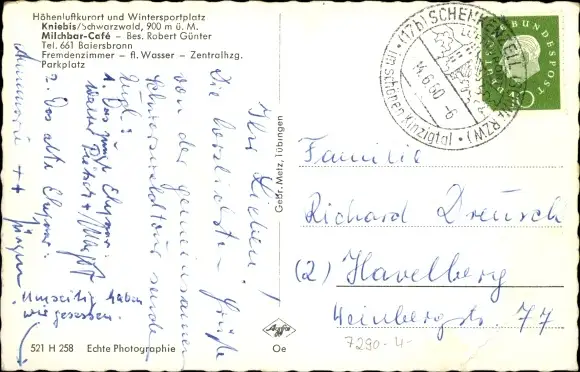 Höhenluftkurort und Wintersportplatz
Kniebis/Schwarzwald, 900 m ü. M.
Milchbar-Café – Bes. Robert Günter
Tel. 661 Baiersbronn
Fremdenzimmer – fl. Wasser – Zentralhzg.
Parkplatz
Ihr Lieben!
Die herzlichsten Grüße
von der gemeinsamen
Schwarzwaldtour senden
Euch:
1. Das junge Ehepaar:
2. Das alte Ehepaar:
Annemarie ++ Jürgen
Umseitig haben
wir gesessen.
521 H 258 Echte Photographie
Oe
Agfa
Gebr. Metz, Tübingen
(17b) SCHENKENZELL
14.6.60.-6
Im schönen Kinzigtal
DEUTSCHE BUNDESPOST
10
Familie
Richard Dreusch
(2) Havelberg
Weinbergstr. 77
7290-4-